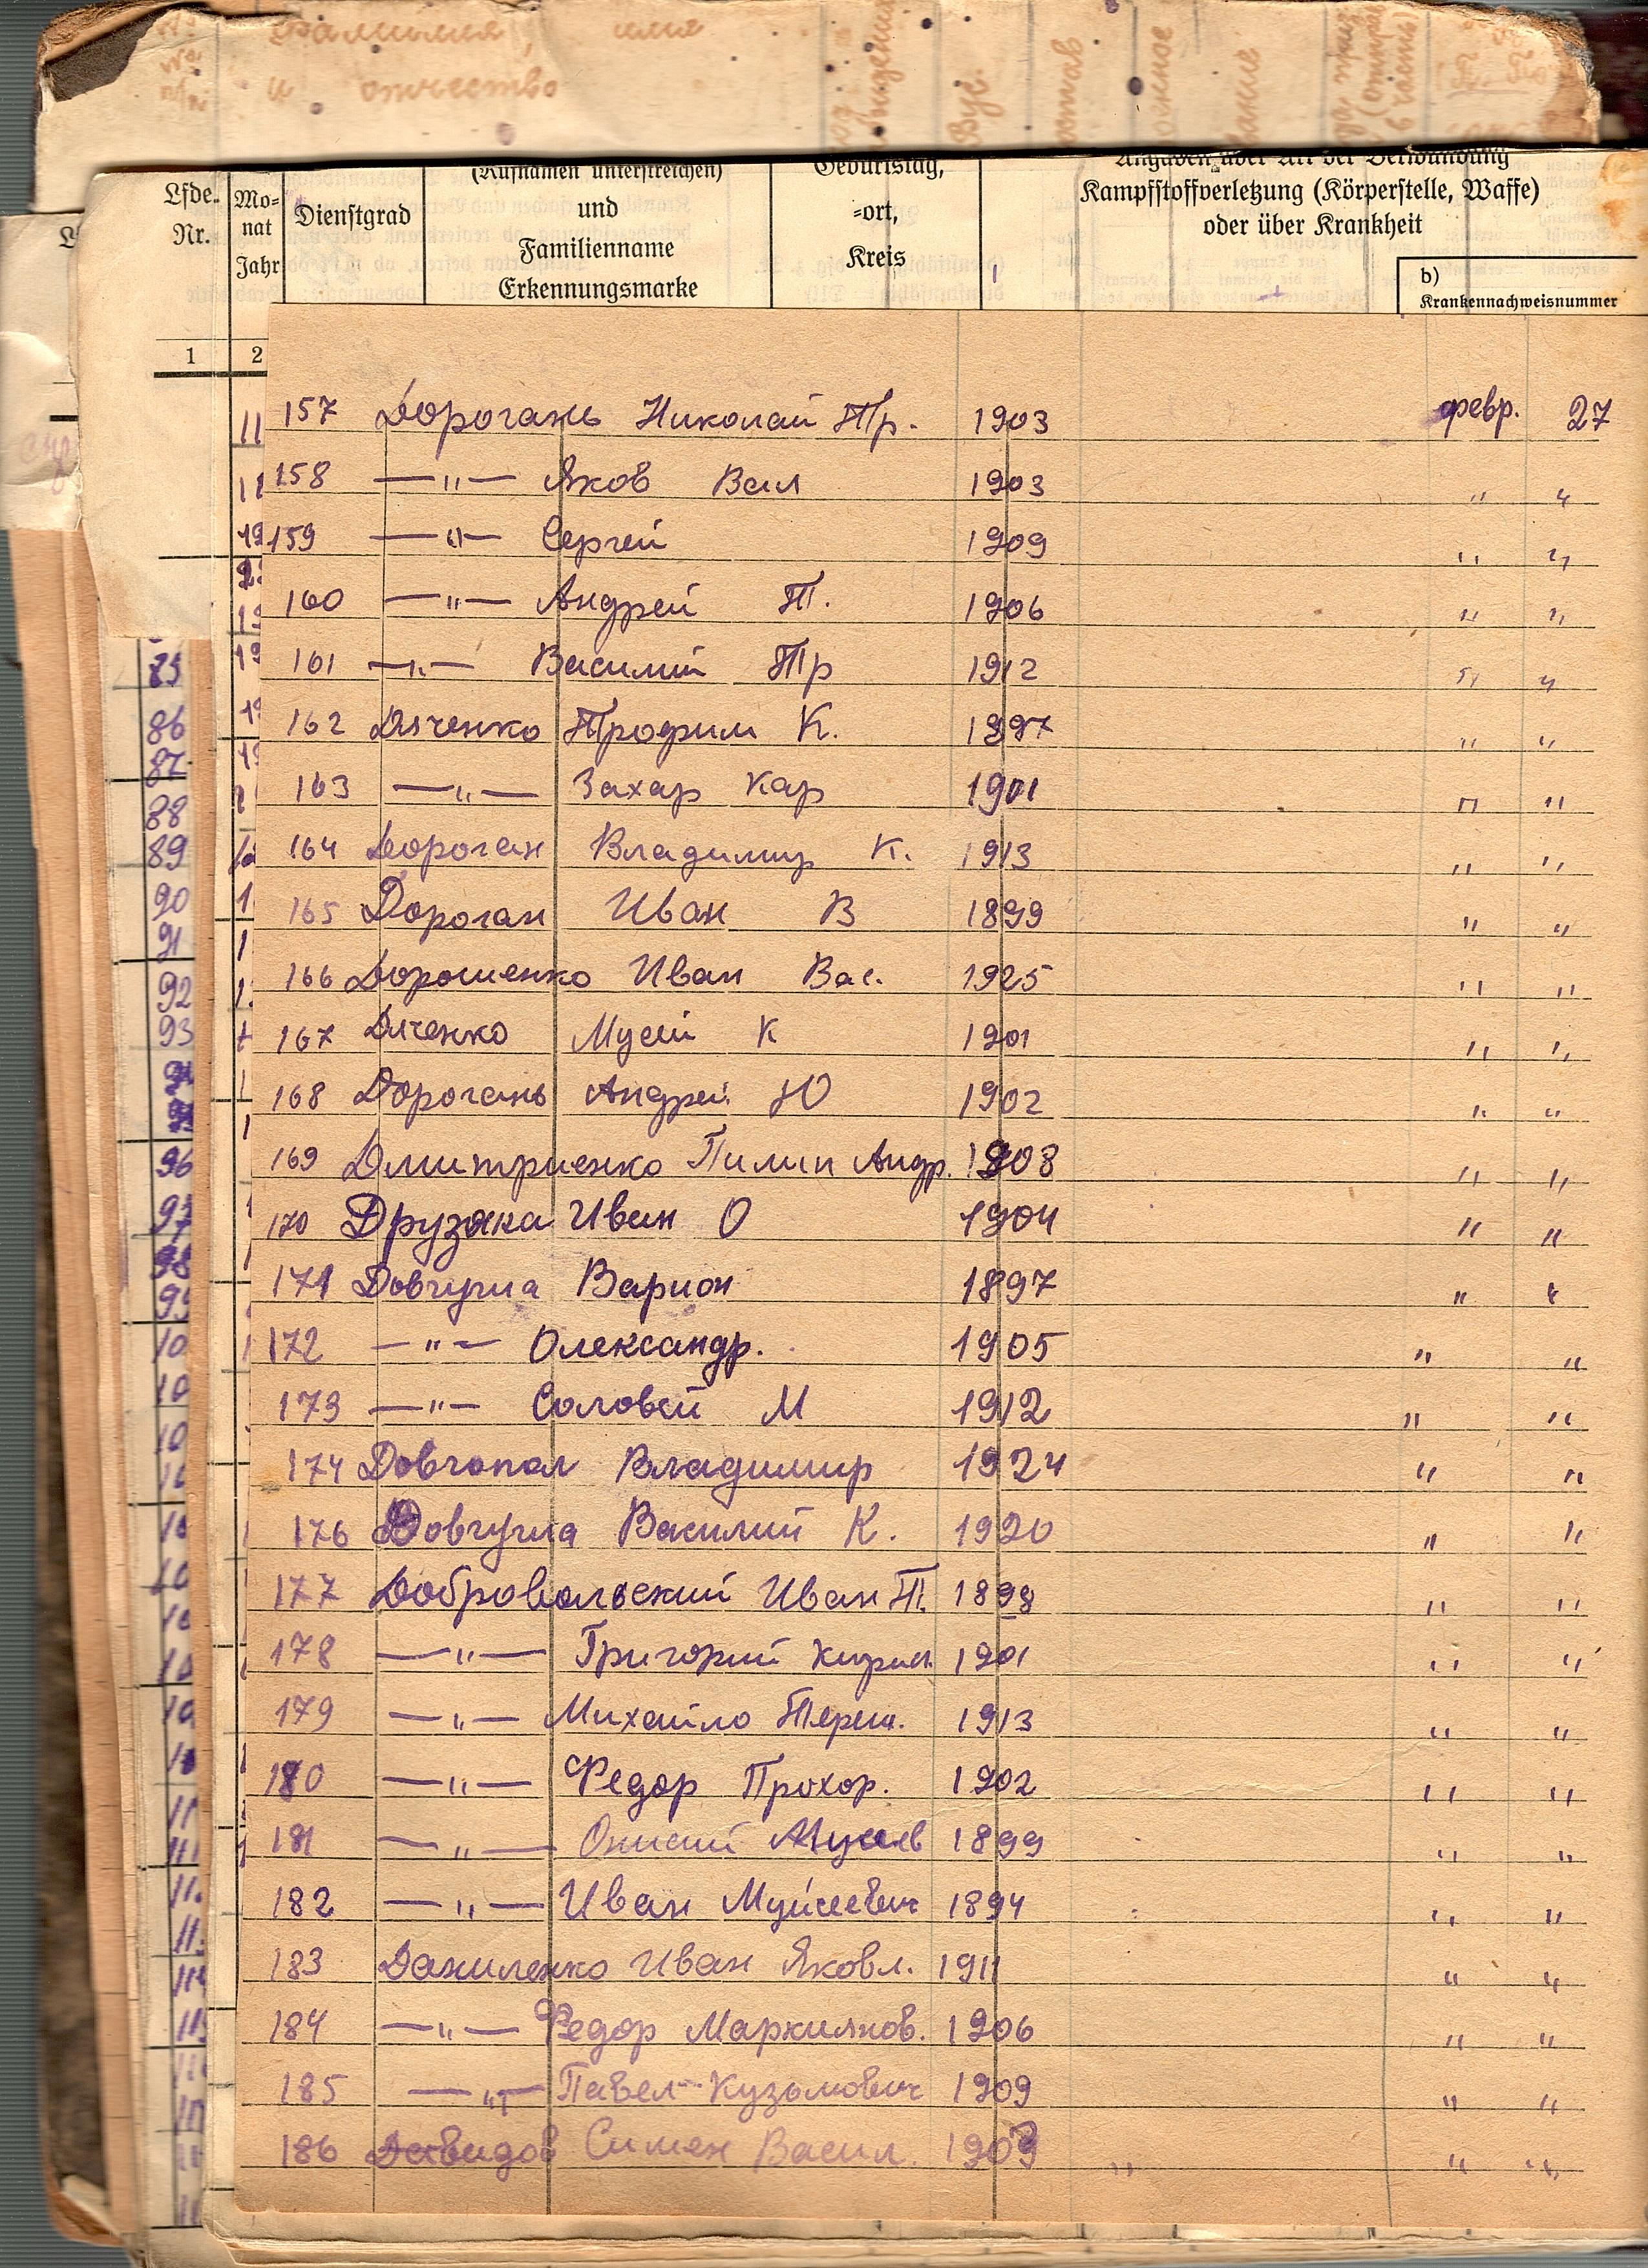 фамилия, имя
и отчество
(Rufnamen unterstreichen)
und
Familienname
Erkennungsmarke
Lfde.
Nr.
Mo=
nat
Jahr
Dienstgrad
Geburtstag,
=ort,
Kreis
Angaben über Art der Verwundung
Kampfstoffverletzung (Körperstelle, Waffe)
oder über Krankheit
b)
Krankennachweisnummer
1 2
157 Дорогань Николай Тр. 1903 февр. 27
158 —"— Яков Вал 1903 " "
159 —"— Сергей 1909 " "
160 —"— Андрей Т. 1906 " "
161 —"— Василий Тр 1912 " "
162 Дяченко Трофим К. 1897 " "
163 —"— Захар Кар 1901 " "
164 Дороган Владимир К. 1913 " "
165 Дороган Иван В 1899 " "
166 Дорошенко Иван Вас. 1925 " "
167 Дяченко Мусий К 1901 " "
168 Дорогань Андрей Ю 1902 " "
169 Дмитриенко Пилип Андр. 1908 " "
170 Друзяка Иван О 1904 " "
171 Довгуша Варион 1897 " "
172 —"— Олександр. 1905 " "
173 —"— Соловей М 1912 " "
174 Довгопол Владимир 1924 " "
176 Довгуша Василий К. 1920 " "
177 Добровольский Иван Т. 1898 " "
178 —"— Григорий Кирил 1901 " "
179 —"— Михайло Тереш. 1913 " "
180 —"— Федор Прохор. 1902 " "
181 —"— 1899 " "
182 —"— Иван Муйсеевич 1894 " "
183 Даниленко Иван Яковл. 1911 " "
184 —"— Федор Маркиянов. 1906 " "
185 —"— Павел Кузьмович 1909 " "
186 Давидов Симен Васил. 1909 " " "
85
86
87
88
89
90
91
92
93
96
97
98
99